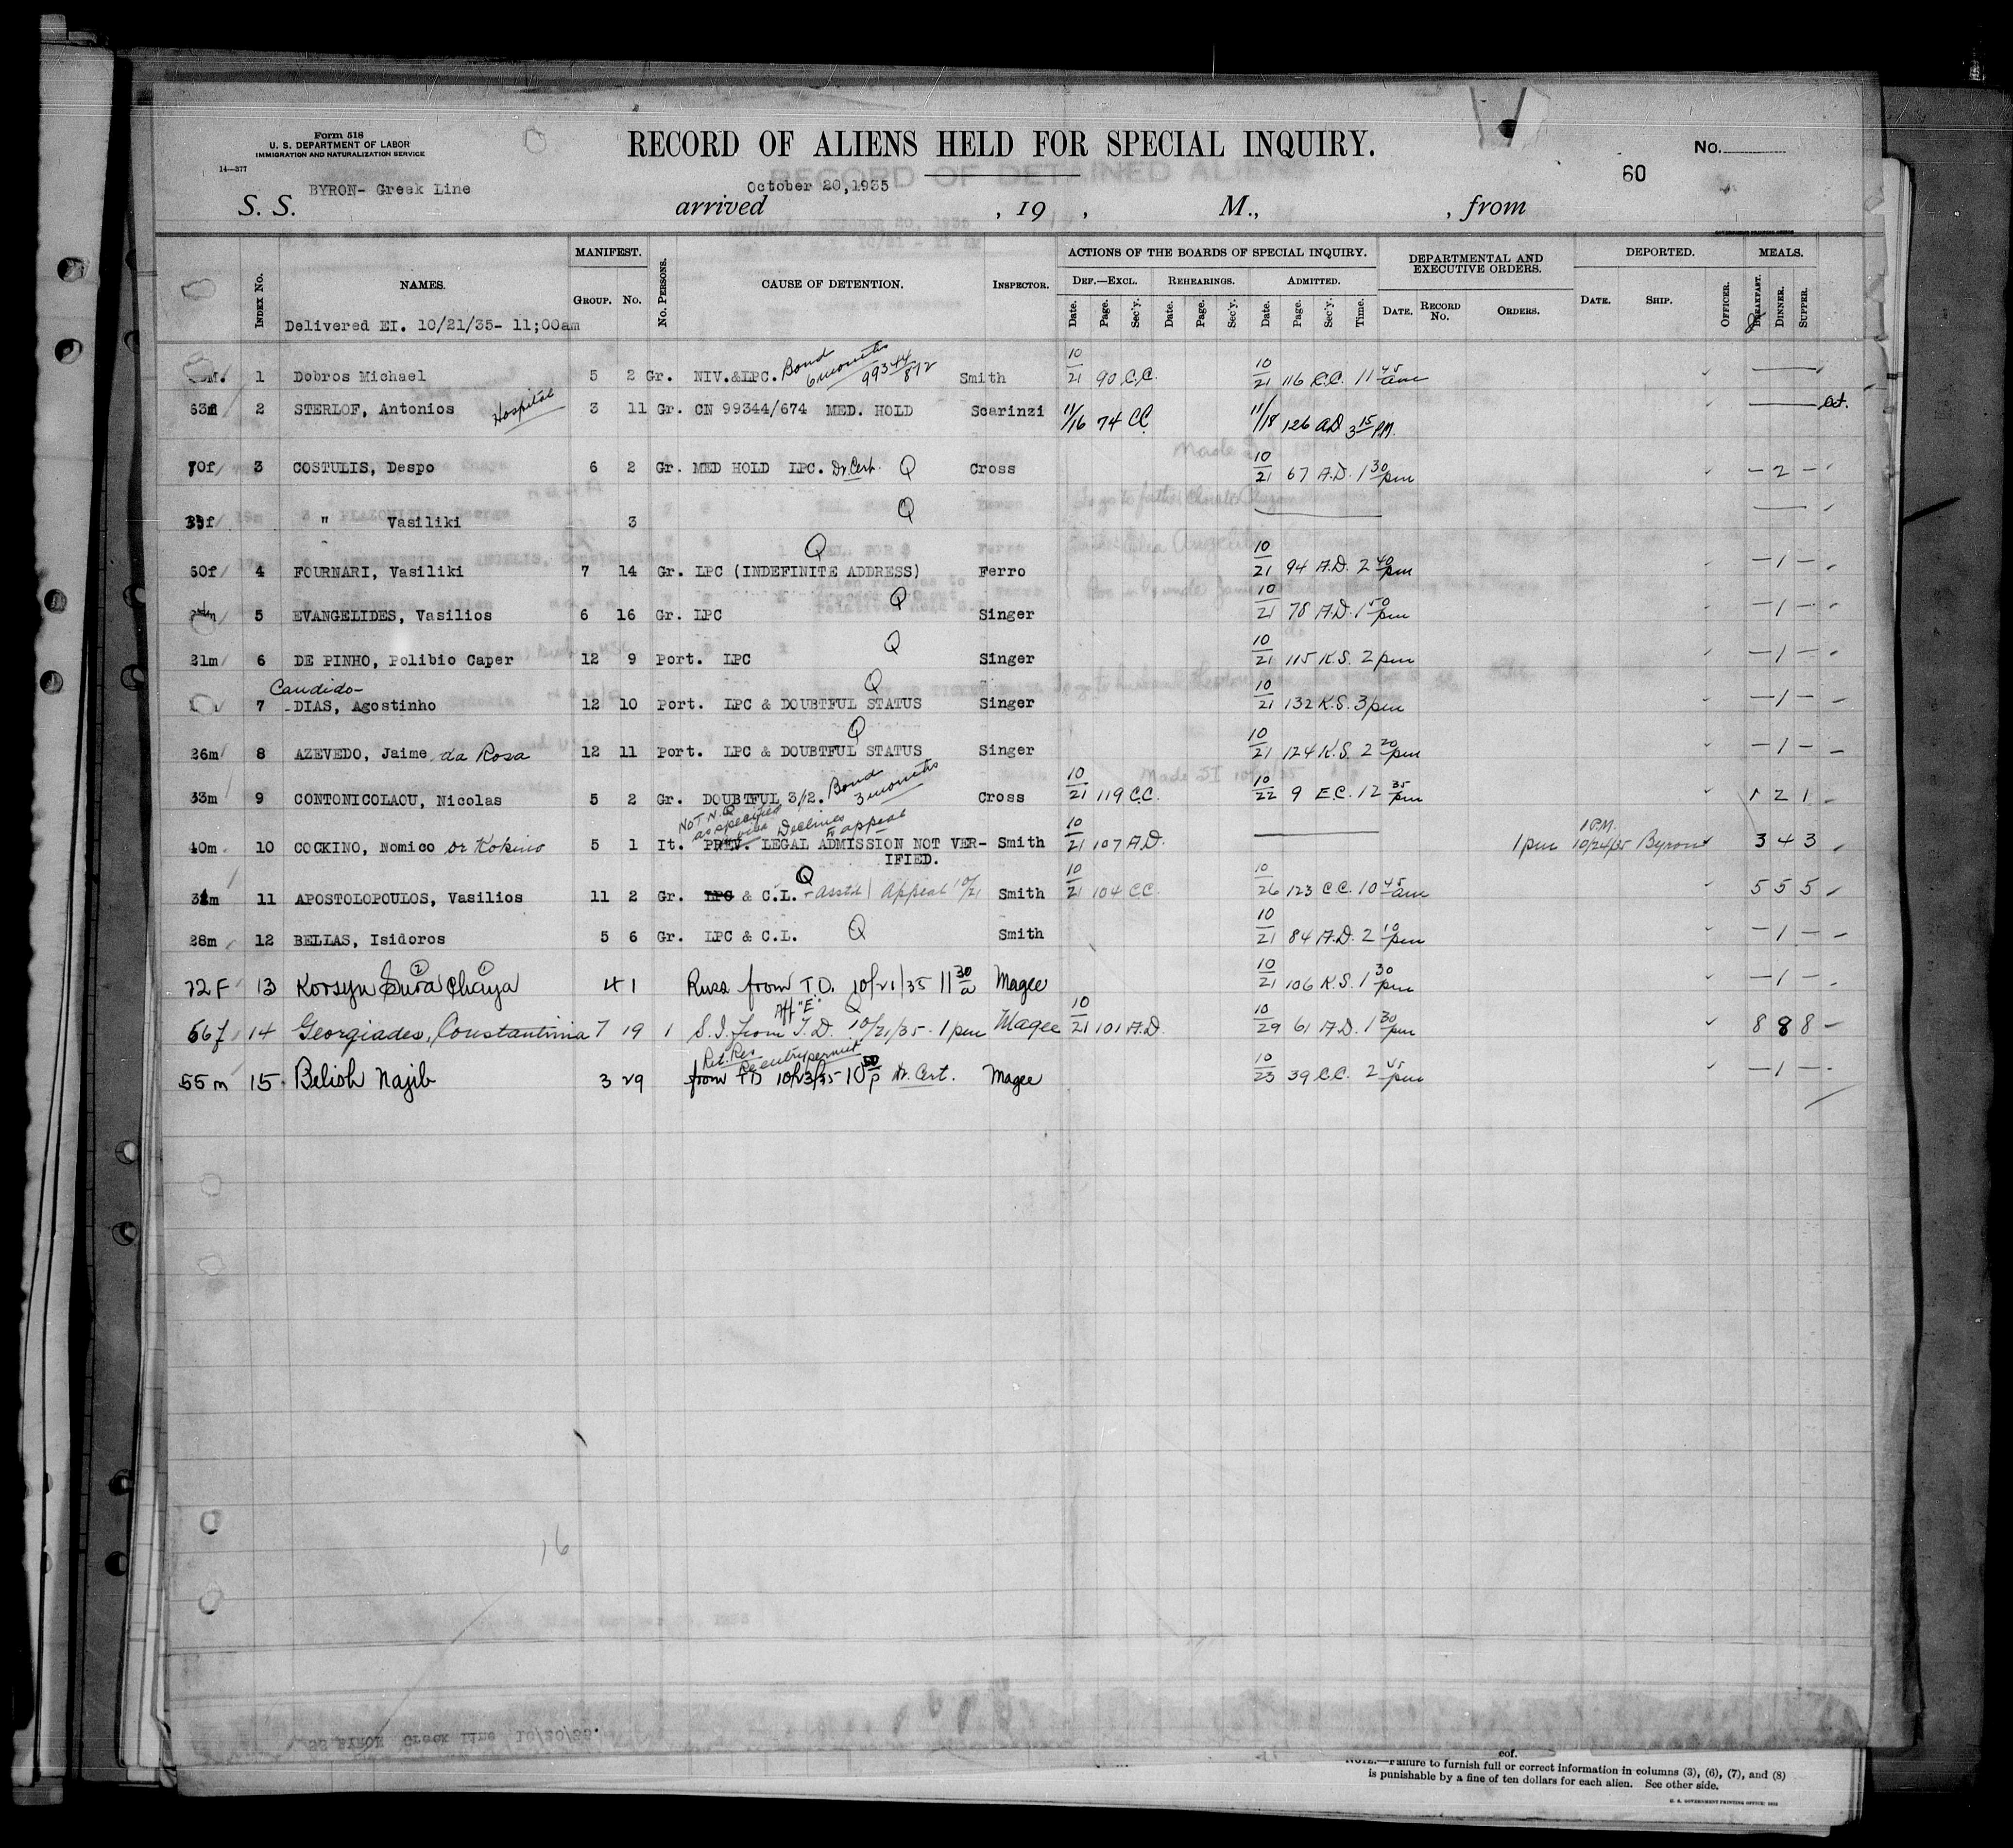 Form 518
U. S. DEPARTMENT OF LABOR
IMMIGRATION AND NATURALIZATION SERVICE
14—377
RECORD OF ALIENS HELD FOR SPECIAL INQUIRY.
No.
60
S. S. BYRON- Greek Line arrived October 20,1935 , 19 , M., , from
INDEX No. NAMES. MANIFEST. GROUP. No. No. PERSONS. CAUSE OF DETENTION. INSPECTOR. ACTIONS OF THE BOARDS OF SPECIAL INQUIRY. DEPARTMENTAL AND EXECUTIVE ORDERS. DEPORTED. MEALS.
DEF.—EXCL. REHEARINGS. ADMITTED.
Date. Page. Sec'y. Date. Page. Sec'y. Date. Page. Sec'y. Time. DATE. RECORD No. ORDERS. DATE. SHIP. OFFICER. BREAKFAST. DINNER. SUPPER.
Delivered EI. 10/21/35- 11;00am
1 Dobros Michael 5 2 Gr. NIV.&LPC. Bond 6 months 99344/872 Smith 10/21 90 C.C. 10/21 116 E.C. 11 45 am
63m 2 STERLOF, Antonios Hospital 3 11 Gr. CN 99344/674 MED. HOLD Scarinzi 11/16 74 CC 11/18 126 A.D. 3 15 P.M.
70f 3 COSTULIS, Despo 6 2 Gr. MED HOLD LPC. Dr. Cert. Q Cross 10/21 67 A.D. 1 30 pm — 2 —
" Vasiliki 3 Q
60f 4 FOURNARI, Vasiliki 7 14 Gr. LPC (INDEFINITE ADDRESS) Q Ferro 10/21 94 A.D. 2 40 pm — 1 —
5 EVANGELIDES, Vasilios 6 16 Gr. LPC Q Singer 10/21 78 A.D. 1 50 pm — 1 —
21m 6 DE PINHO, Polibio Caper 12 9 Port. LPC Q Singer 10/21 115 K.S. 2 pm — 1 —
Candido-
7 -DIAS, Agostinho 12 10 Port. LPC & DOUBTFUL STATUS Q Singer 10/21 132 K.S. 3 pm — 1 —
26m 8 AZEVEDO, Jaime da Rosa 12 11 Port. LPC & DOUBTFUL STATUS Q Singer 10/21 124 K.S. 2 20 pm — 1 —
33m 9 CONTONICOLAOU, Nicolas 5 2 Gr. DOUBTFUL 3/2. Bond 3 months Cross 10/21 119 C.C. 10/22 9 E.C. 12 35 pm 1 2 1
NOT N.Q as specified visa Declines to appeal
40m 10 COCKINO, Nomico or Kokino 5 1 It. PREV. LEGAL ADMISSION NOT VER- IFIED. Smith 10/21 107 A.D. 1 pm 1 P.M. 10/24/35 Byron 3 4 3
11 APOSTOLOPOULOS, Vasilios 11 2 Gr. LPC & C.L. Q Appeal 10/21 Smith 10/21 104 C.C. 10/26 123 C.C. 10 45 am 5 5 5
28m 12 BELLAS, Isidoros 5 6 Gr. LPC & C.L. Q Smith 10/21 84 A.D. 2 10 pm — 1 —
72F 13 Korsyn Sura Chaya 4 1 Russ from T.D. 10/21/35 11 30 a Magee 10/21 106 K.S. 1 30 pm — 1 —
56f 14 Georgiades, Constantinia 7 19 1 S.I. from T.D. Aff "E" Q 10/21/35 - 1 pm Magee 10/21 101 A.D. 10/29 61 A.D. 1 30 pm 8 8 8
Ret. Res Reentry permit
55m 15 Belish Najib 3 29 from TD 10/23/35 10 50 p Dr. Cert. Magee 10/23 39 C.C. 2 45 pm — 1 —
16
eof.
NOTE.—Failure to furnish full or correct information in columns (3), (6), (7), and (8)
is punishable by a fine of ten dollars for each alien. See other side.
U. S. GOVERNMENT PRINTING OFFICE